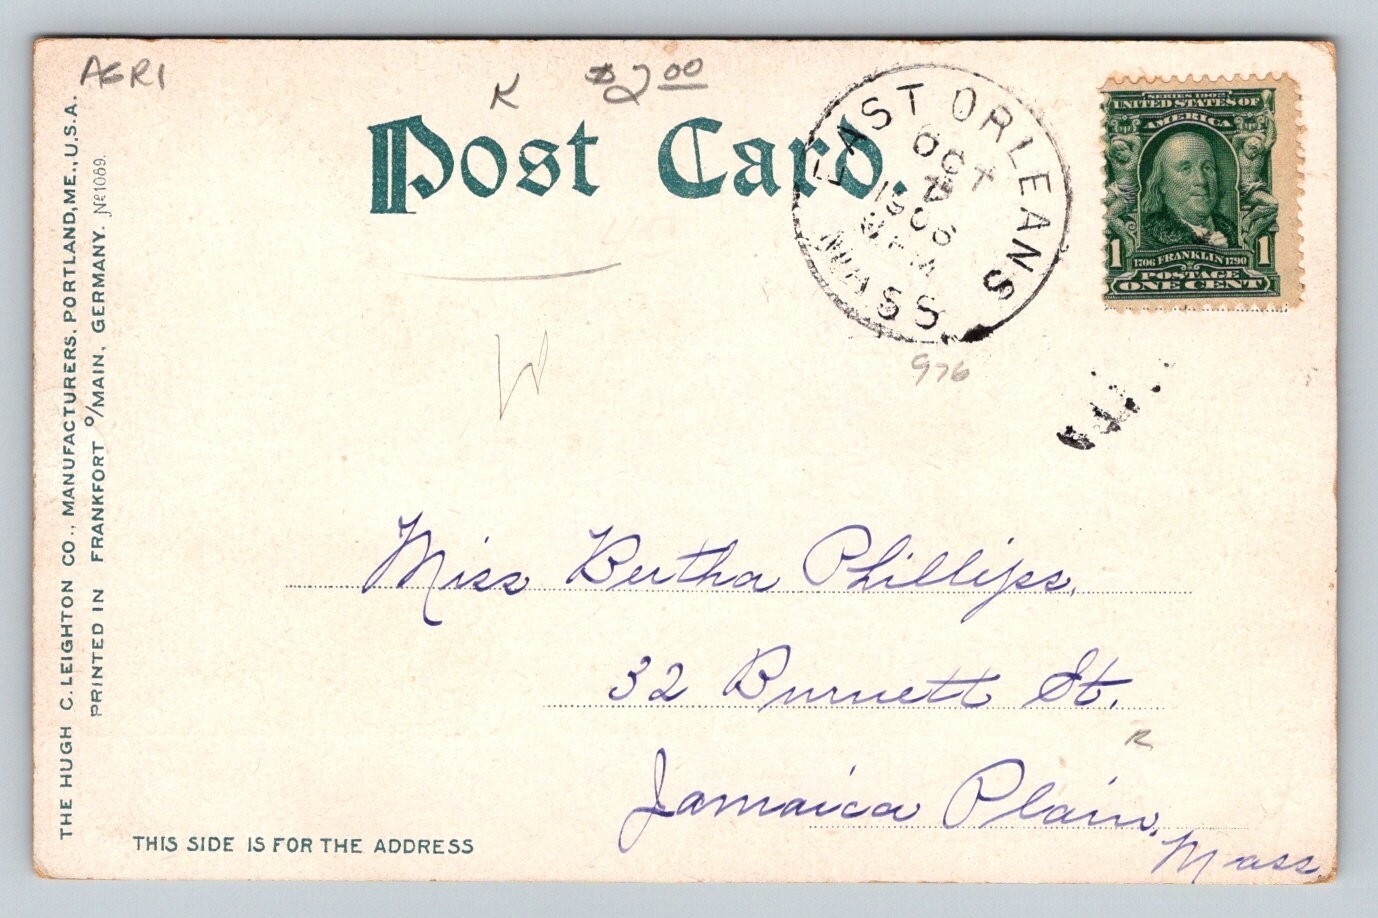 AGRI
K $2.00
Post Card.
EAST ORLEANS
OCT
1906
MASS
SERIES 1902
UNITED STATES OF
AMERICA
1 1706 FRANKLIN 1790 1
POSTAGE
ONE CENT
976
W
Miss Bertha Phillips,
32 Burnett St.
R
Jamaica Plain,
Mass.
THIS SIDE IS FOR THE ADDRESS
THE HUGH C. LEIGHTON CO., MANUFACTURERS, PORTLAND, ME., U.S.A.
PRINTED IN FRANKFORT o/MAIN, GERMANY. No 1089.